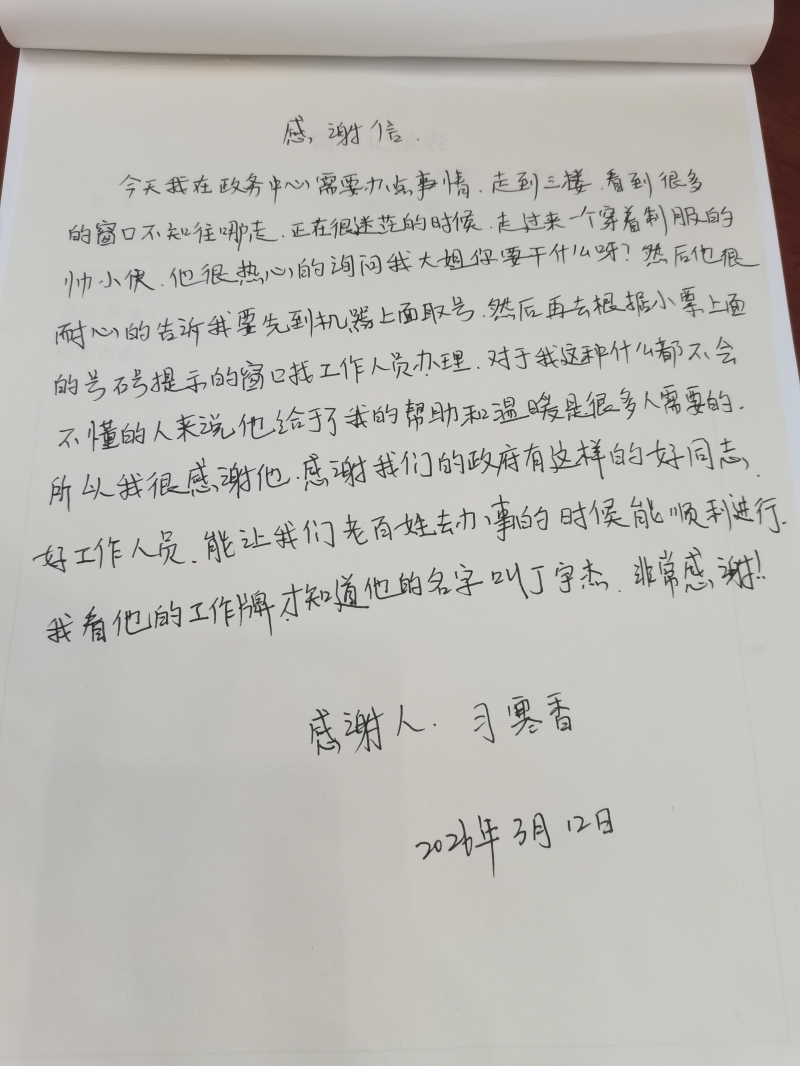 感谢信.
今天我在政务中心需要办点事情.走到三楼.看到很多
的窗口不知往哪走.正在很迷茫的时候.走过来一个穿着制服的
帅小伙.他很热心的询问我大姐你要干什么呀?然后他很
耐心的告诉我要先到机器上面取号.然后再去根据小票上面
的号码提示的窗口找工作人员办理.对于我这种什么都不会
不懂的人来说他给于了我的帮助和温暖是很多人需要的.
所以我很感谢他.感谢我们的政府有这样的好同志.
好工作人员.能让我们老百姓去办事的时候能顺利进行.
我看他的工作牌才知道他的名字叫丁宇杰.非常感谢!!
感谢人.习寒香
2026年3月12日